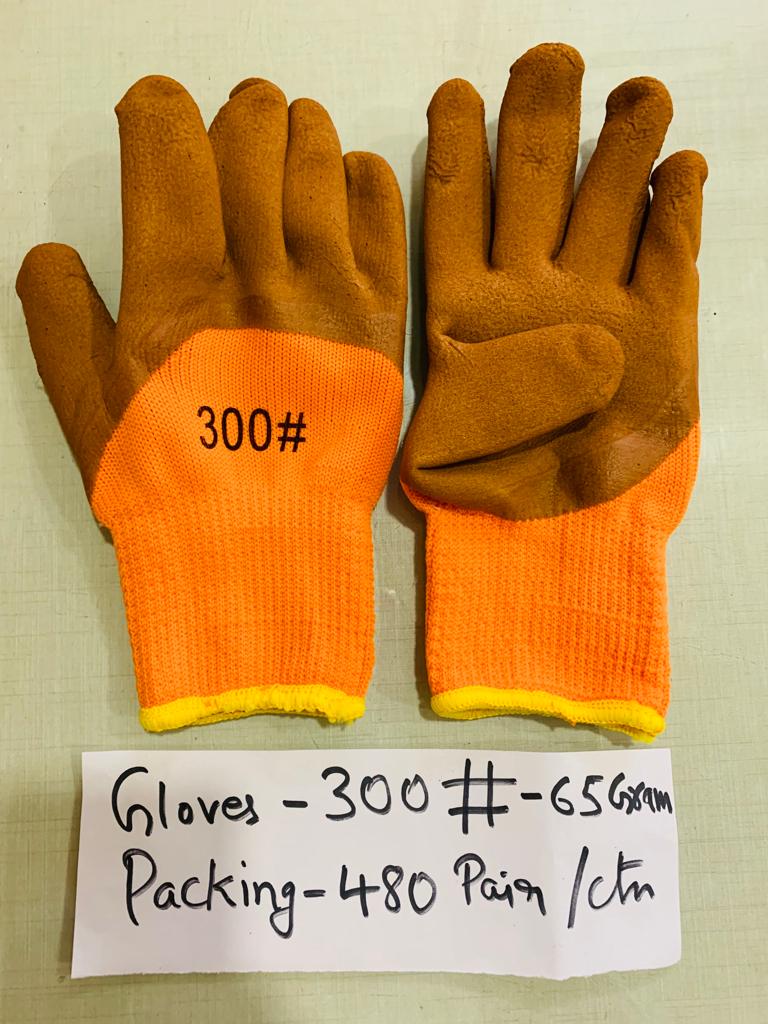 300#
Gloves - 300 # - 65 Gram
Packing - 480 Pair /ctn